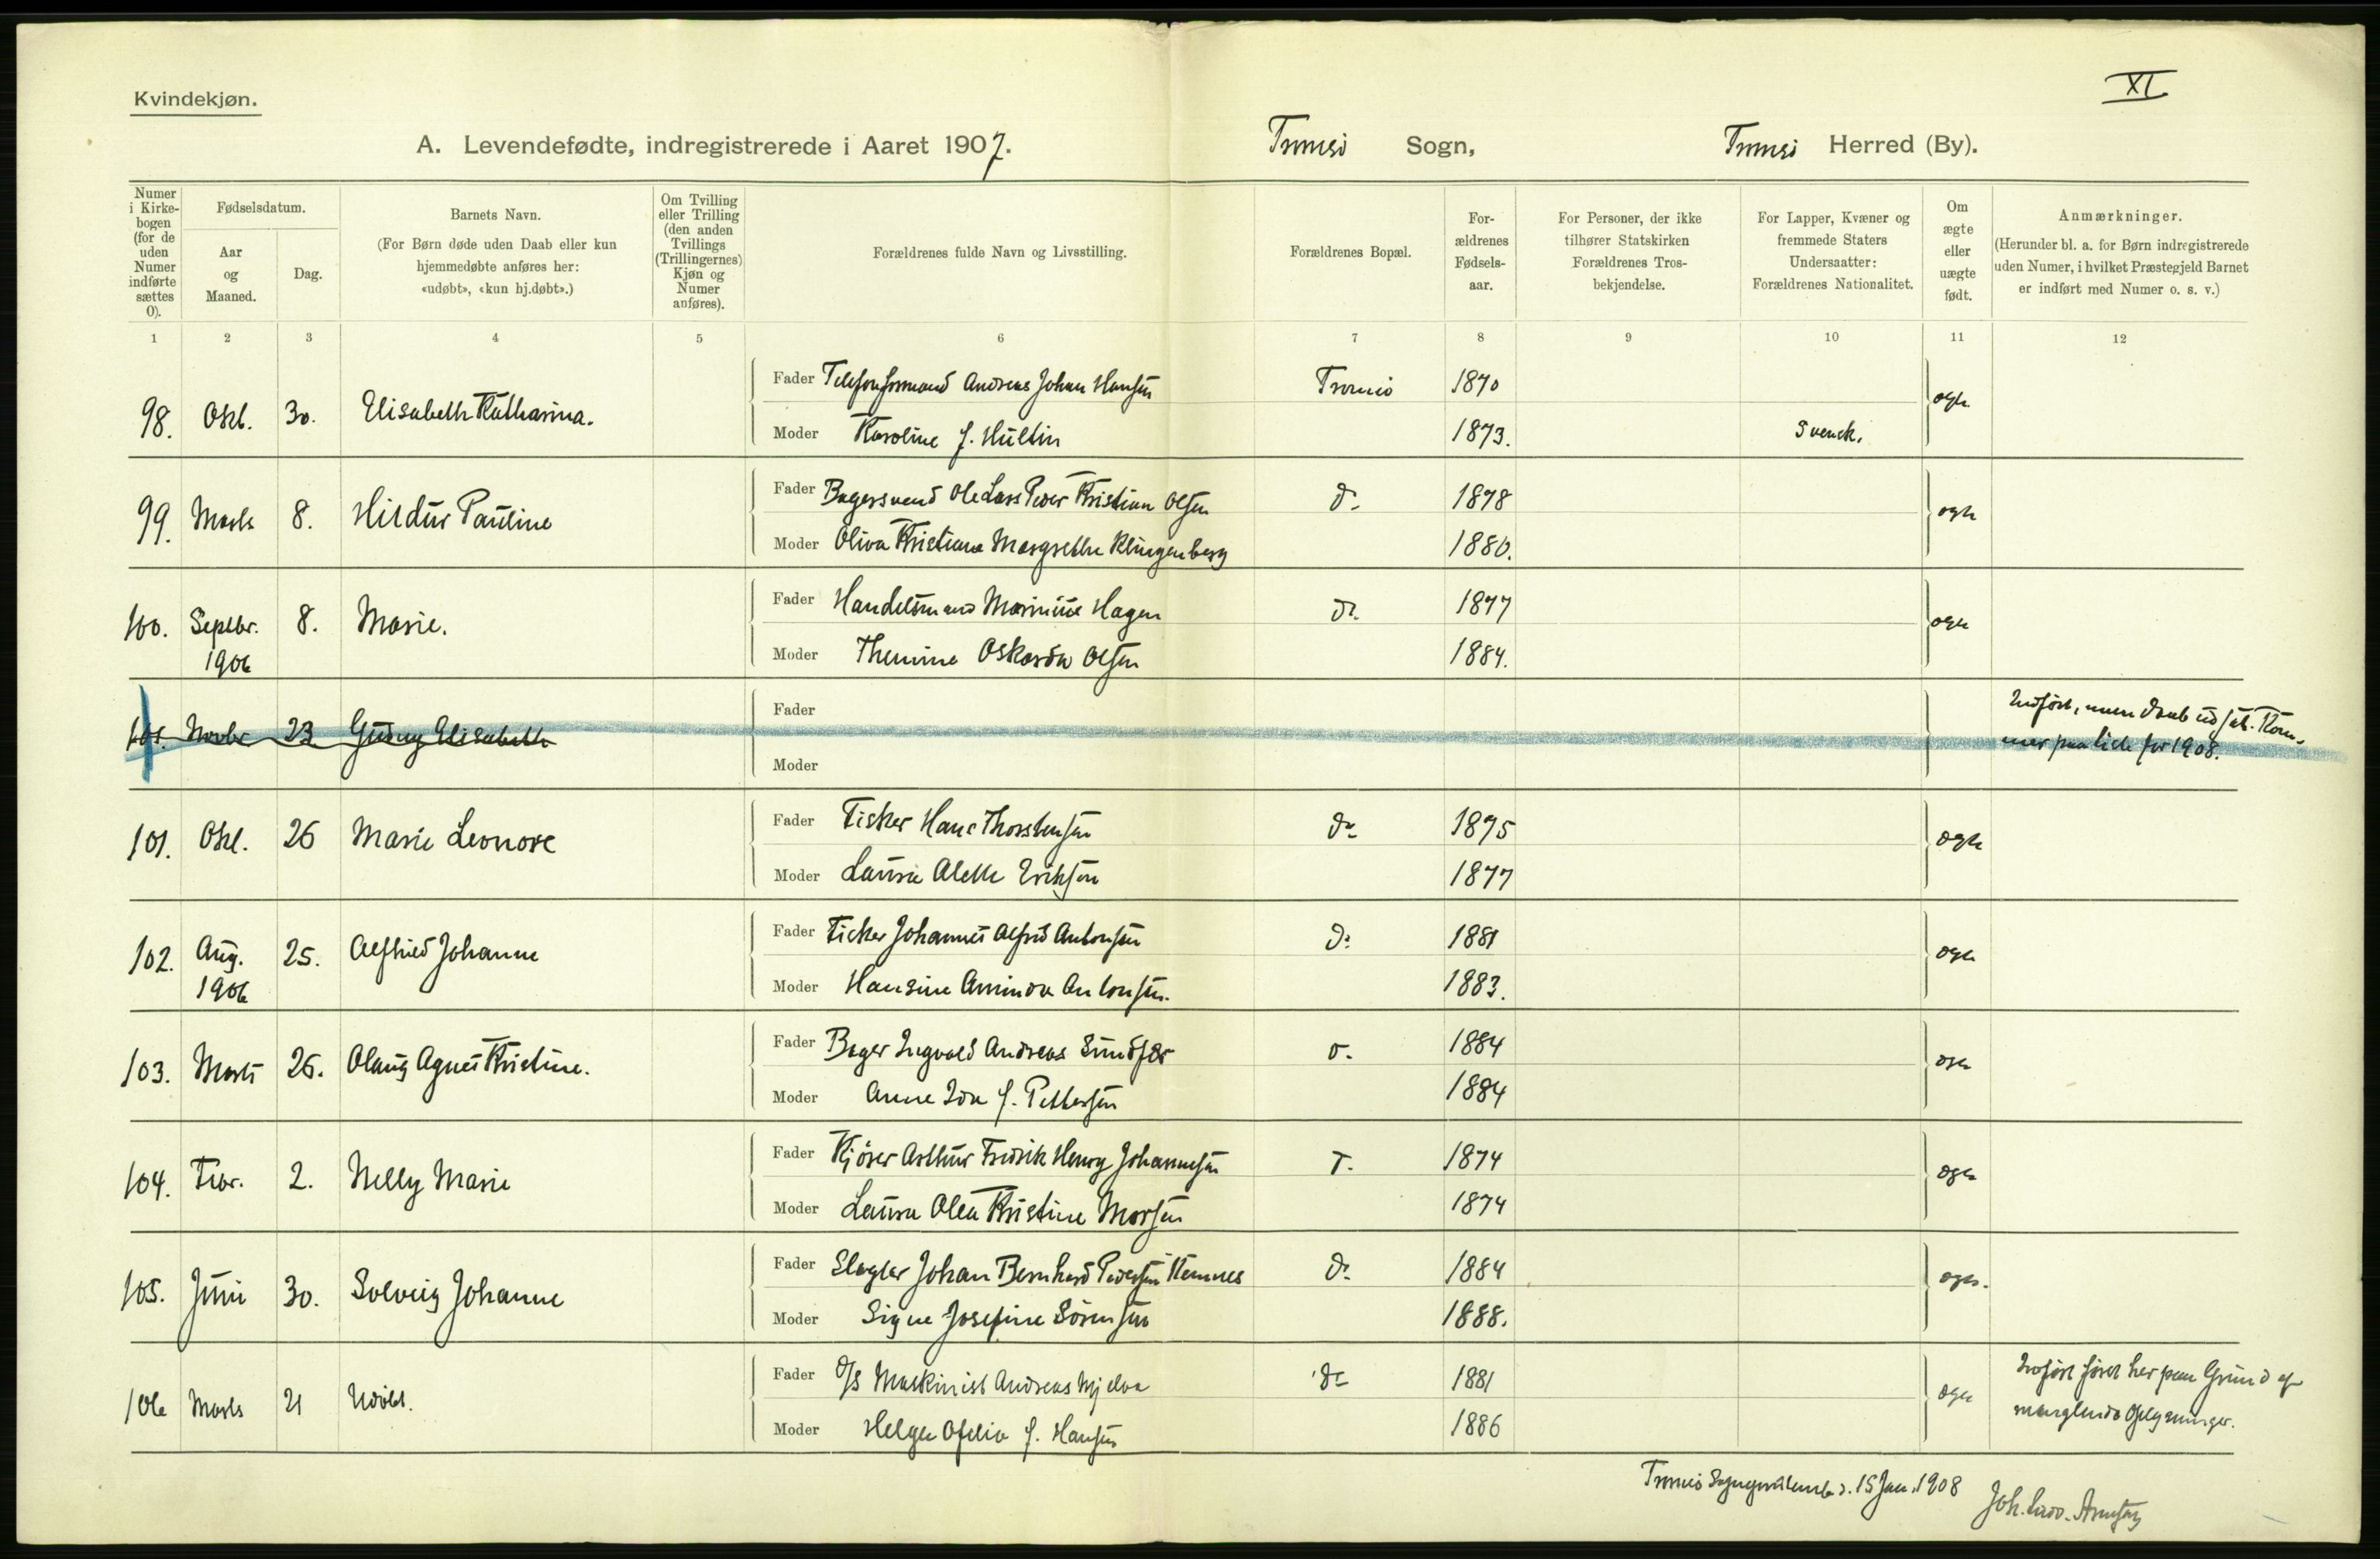 XI.
Kvindekjøn.
A. Levendefødte, indregistrerede i Aaret 1907. Tromsö Sogn, Tromsö Herred (By).
Numer i Kirkebogen (for de uden Numer indførte sættes 0).
Fødselsdatum.
Aar og Maaned.
Dag.
Barnets Navn.
(For Børn døde uden Daab eller kun hjemmedøbte anføres her: «udøbt», «kun hj.døbt».)
Om Tvilling eller Trilling (den anden Tvillings (Trillingernes) Kjøn og Numer anføres).
Forældrenes fulde Navn og Livsstilling.
Forældrenes Bopæl.
Forældrenes Fødselsaar.
For Personer, der ikke tilhører Statskirken Forældrenes Trosbekjendelse.
For Lapper, Kvæner og fremmede Staters Undersaatter: Forældrenes Nationalitet.
Om ægte eller uægte født.
Anmærkninger.
(Herunder bl. a. for Børn indregistrerede uden Numer, i hvilket Præstegjeld Barnet er indført med Numer o. s. v.)
1 2 3 4 5 6 7 8 9 10 11 12
98. Oktb. 30. Elisabeth Katharina. Fader Telefonformand Andreas Johan Hansen Tromsö 1870 ægte
Moder Karoline f. Hultin 1873. Svensk.
99. Marts 8. Hildur Pauline Fader Bagersvend Ole Lars Peder Kristian Olsen do. 1878 ægte
Moder Oliva Kristiane Margrethe Klingenberg 1880.
100. Septbr. 1906 8. Marie. Fader Handelsmand Marinius Hagen do. 1877 ægte
Moder Themine Oskarda Olsen 1884.
101. Novbr 23 Gudny Elisabeth Fader Indført, men Daab udsat. Kom-
Moder mer paa Liste for 1908.
101. Okt. 26 Marie Leonore Fader Fisker Hans Thorstensen do. 1875 ægte
Moder Laura Alette Eriksen 1877
102. Aug. 1906 25. Alfhild Johanne Fader Fisker Johannes Alfred Antonsen do. 1881 ægte
Moder Hansine Aminda Antonsen. 1883.
103. Marts 26. Olaug Agnes Kristine. Fader Bager Ingvald Andreas Sundfær do. 1884 ægte
Moder Anne Ida f. Pettersen 1884
104. Febr. 2. Nelly Marie Fader Kjörer Arthur Fredrik Henry Johannesen T. 1874 ægte
Moder Laura Olea Kristine Morsen 1874
105. Juni 30. Solveig Johanne Fader Slagter Johan Bernhard Pedersen Kemnes do. 1884 ægte.
Moder Signe Josefine Sörensen 1888.
106 Marts 21 Udöbt. Fader D/S Maskinist Andreas Mjelva do 1881 ægte Indført først her paa Grund af
Moder Helga Ofelia f. Hansen 1886 manglende Oplysninger.
Tromsö Sogneprestemb. d. 15 Jan. 1908